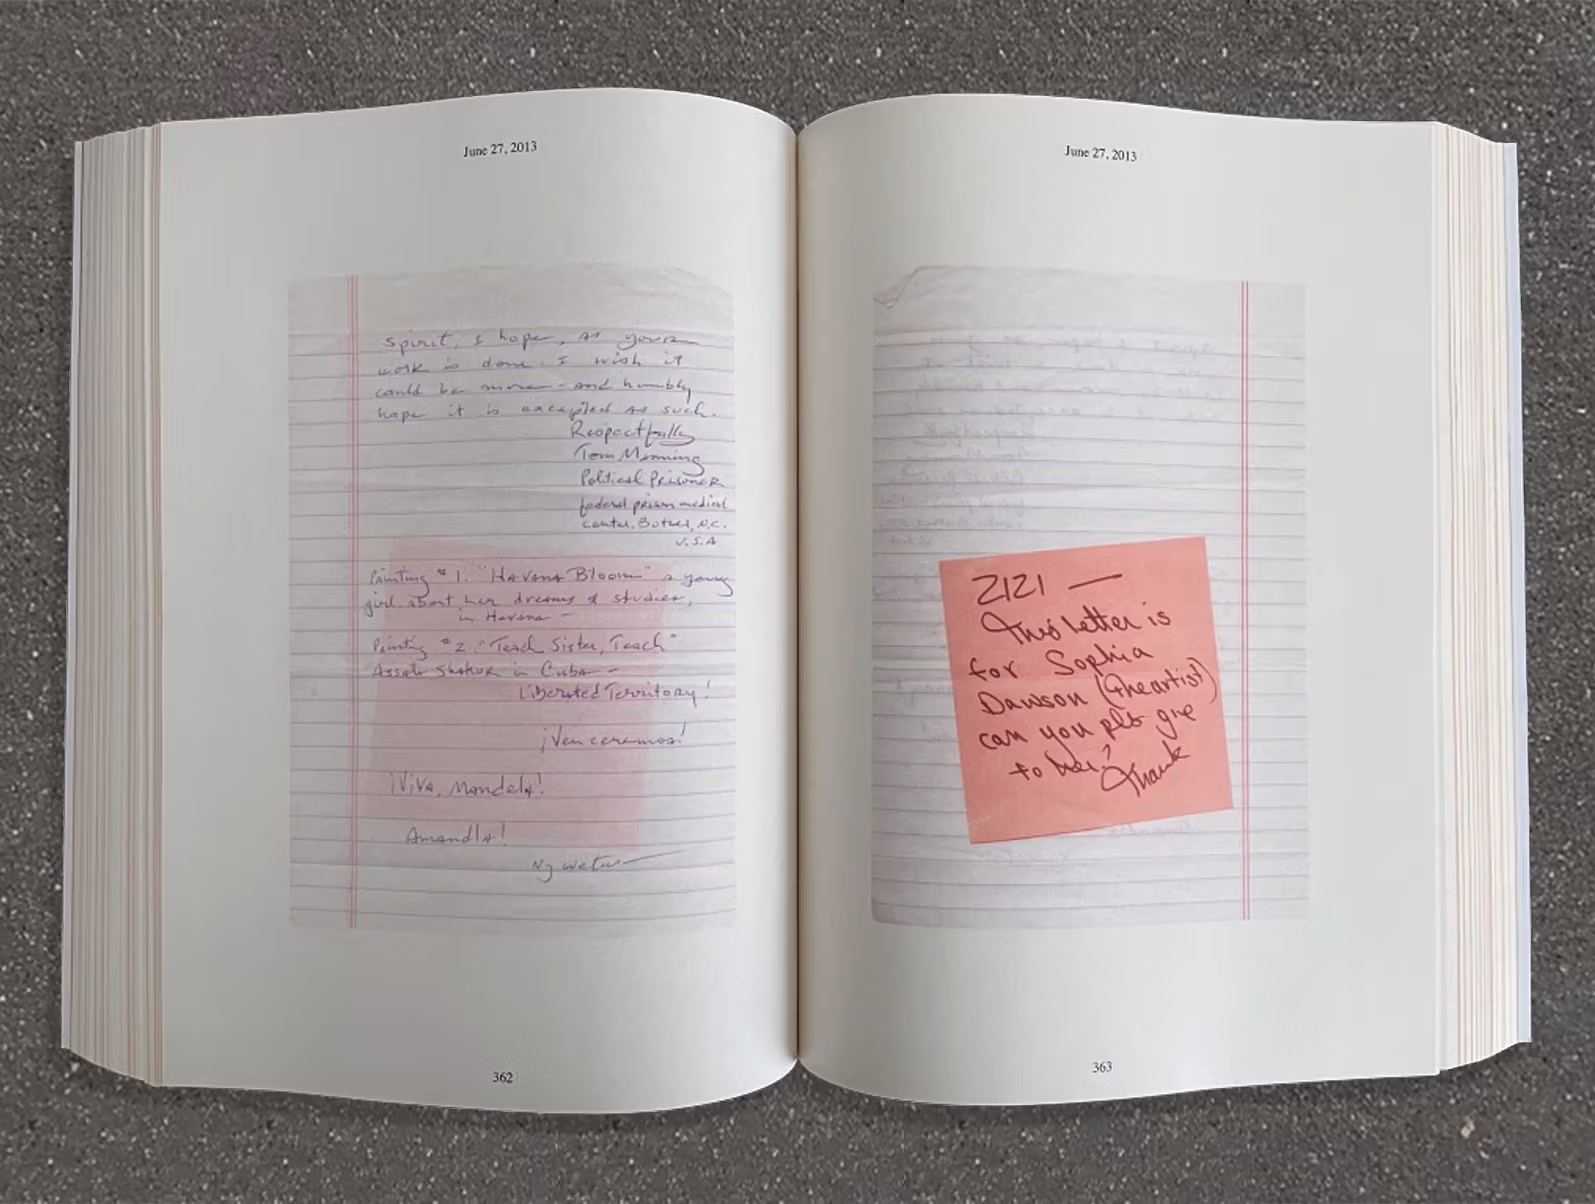 June 27, 2013
spirit, I hope, as your
work is done. I wish it
could be more - and humbly
hope it is accepted as such.
Respectfully
Tom Manning
Political Prisoner
federal prison medical
center, Butner, N.C.
U.S.A
Painting #1. "Havana Bloom" a young
girl about her dreams & studies,
in Havana —
Painting #2. "Teach Sister, Teach"
Assata Shakur in Cuba —
Liberated Territory!
¡Venceremos!
¡Viva, Mandela!
Amandla!
Ngwetu
362
June 27, 2013
ZIZI —
This letter is
for Sophia
Dawson (the artist)
can you pls give
to her?
Thank
363